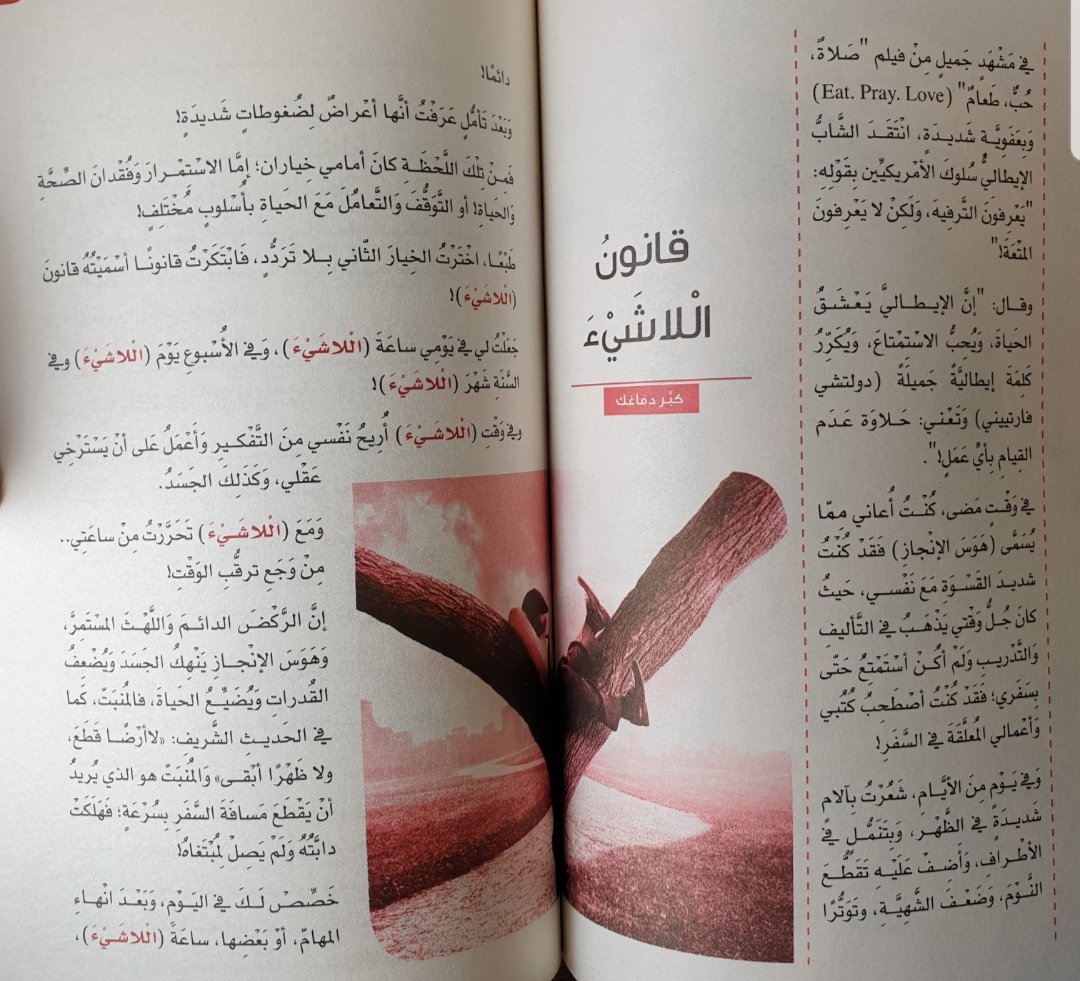 قانونُ
الْلاشَيْءَ
كبّر دماغك
في مَشْهَد جَميلٍ مِنْ فيلم "صَلاةٌ،
حُبٌّ، طَعامٌ" (Eat. Pray. Love)
وَبِعَفَوِيَّة شديدَةٍ، انْتَقَدَ الشَّابُّ
الإيطاليُّ سُلوكَ الأَمْريكيِّين بِقَوْلِهِ:
"يَعْرِفونَ التَّرفيهَ، وَلَكِنْ لا يَعْرِفونَ
المتْعَةَ!"
وقـال: "إنَّ الإيـطـالـيَّ يَـعْـشَـقُ
الحَياةَ، وَيُحِبُّ الاسْتِمْتاعَ، وَيُكَرِّرُ
كَلِمَةَ إيطاليَّةً جَميلَةً (دولتشي
فارتييني) وَتَعْني: حَلاوَة عَدَم
القِيام بِأيِّ عَمَلٍ!".
في وَقْتٍ مَضى، كُنْتُ أُعاني مِمّا
يُسَمَّى (هَوَسَ الإنْجازِ) فَقَدْ كُنْتُ
شديدَ القَسْوَةِ مَعَ نَفْسـي، حَيثُ
كانَ جُلُّ وَقْتي يَذْهَـبُ في التَّأليفِ
وَالتَّدْريبِ وَلَمْ أكُـنْ أسْتَمْتِعُ حَتّى
بِسَفَري؛ فَقَدْ كُنْتُ أصْطَحِبُ كُتُبي
وَأعْمالي المُعلَّقَةَ في السَّفَرِ!
وَفي يَـوْم مِنَ الأيَّـامِ، شَعُرْتُ بِآلامٍ
شَديدَةً في الظَّهْرِ، وَبِتَنَمُّـلٍ في
الأطْرافِ، وَأَضفْ عَلَيْـهِ تَقَطُّـعَ
النَّوْمَ، وَضَعْفَ الشَّهِيَّةِ، وَتَوَتُّرًا
دائمًا!
وَبَعْدَ تَأمُّلٍ عَرَفْتُ أنَّها أعْراضٌ لِضُغوطاتٍ شَديدَةٍ!
فَمنْ تِلْكَ اللَّحْظَـةِ كانَ أمامي خِياران: إمَّا الاسْتمْـرارَ وَفُقْدانَ الصِّحَّةِ
وَالحَياةِ! أو التَّوَقُّفَ وَالتَّعامُلَ مَعَ الحَياةِ بأُسْلوبٍ مُخْتَلِفٍ!
طَبْعًـا، اخْتَرْتُ الخِيارَ الثَّاني بِـلا تَرَدُّدٍ، فَابْتَكَرْتُ قانونًـا أسْمَيْتُهُ قانونَ
(الْلاشَيْءَ)!
جَعَلْتُ لي في يَوْمي ساعَةَ (الْلاشَيْءَ)، وَفي الأُسْبوعِ يَوْمَ (الْلاشَيْءَ) وفي
السَّنَةِ شَهْرَ (الْلاشَيْءَ)!
وفي وَقْتِ (الْلاشَـيْءَ) أُريحُ نَفْسي مِنَ التَّفْكـيرِ وَأعْمَلُ عَلى أنْ يَسْتَرْخِي
عَقْلي، وَكَذَلِكَ الجَسَدُ.
وَمَعَ (الْلاشَـيْءَ) تَحَرَّرْتُ مِنْ ساعَتِي..
مِنْ وَجَعِ ترقُّبِ الوَقْتِ!
إنَّ الرَّكْضَ الدائـمَ وَاللَّهْثَ المسْتَمرَّ،
وَهَوَسَ الإنْجـازِ يَنْهِكُ الجَسَدَ وَيُضْعِفُ
القُدراتِ وَيُضَيِّـعُ الحَياةَ، فالمُنبَتّ، كَما
في الحَديـثِ الشَّريفِ: «لاأرْضًـا قَطَعَ،
ولا ظَهْرًا أبْقـى» وَالمُنْبَتّ هو الذي يُريدُ
أنْ يَقْطَعَ مَسافَةَ السَّفَرِ بِسُرْعَةٍ؛ فَهَلَكَتْ
دابَّتُهُ وَلَمْ يَصِلْ لِمُبْتَغاهُ!
خَصِّصْ لَكَ في اليَوْمِ، وَبَعْدَ انْهاءِ
المهامّ، أوْ بَعْضِها، ساعَةَ (الْلاشَيْءَ)،